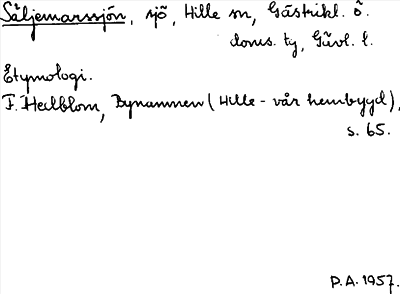 Såljemarssjön, sjö, Hille sn, Gästrikl. ö.
doms. ty, Gävl. l.
Etymologi.
F. Hedblom, Bynamnen (Hille - vår hembygd),
s. 65.
P.A. 1957.